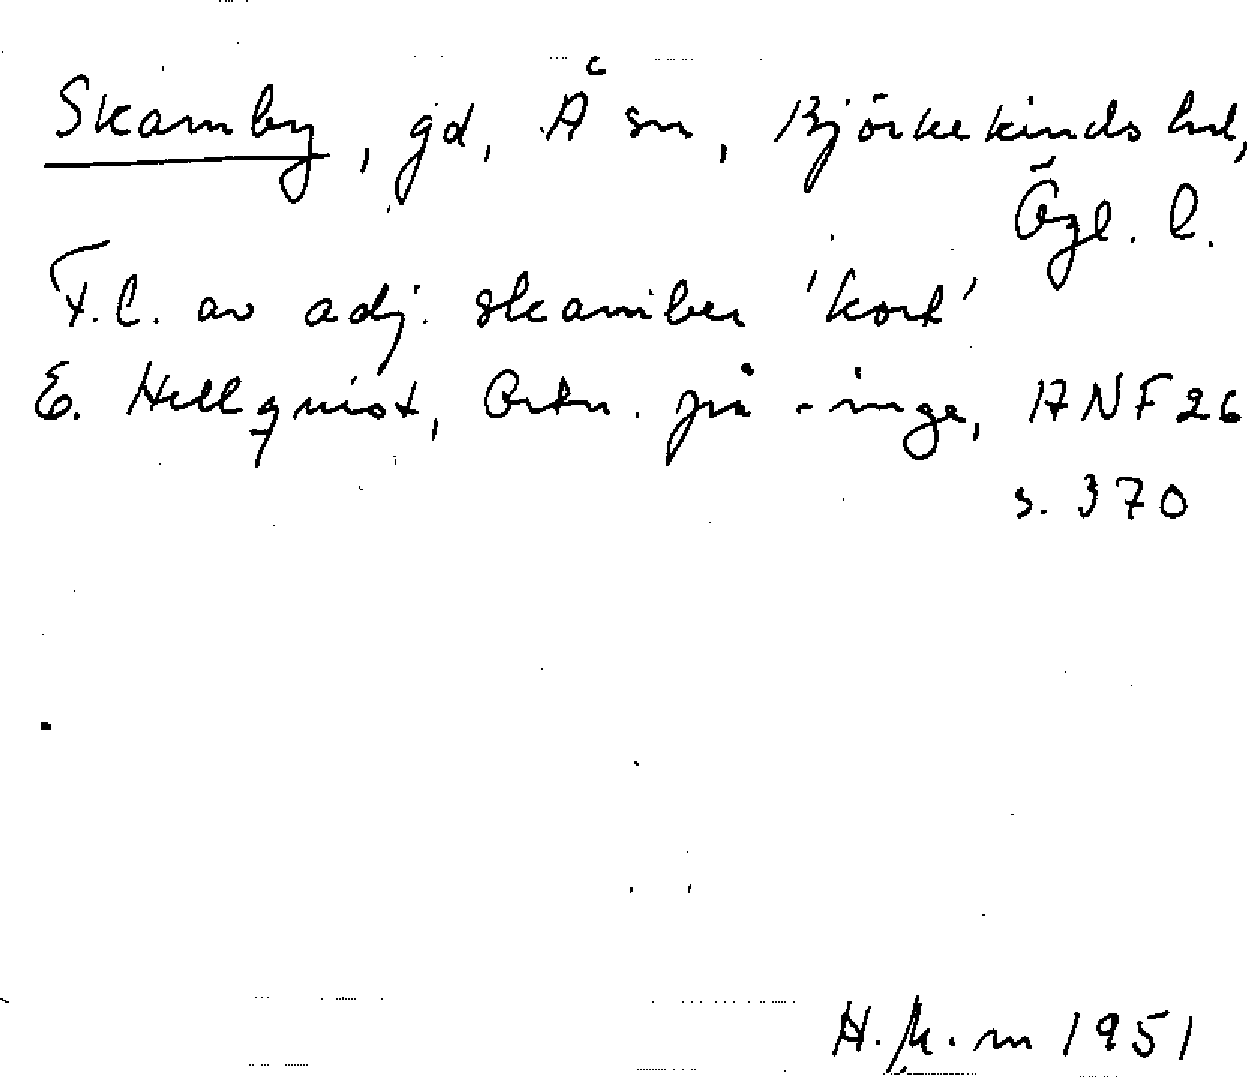 Skamby, gd, Å sn, Björkekinds hd,
Ögl. l.
F.l. av adj. skamber 'kort'
E. Hellquist, Ortn. på -inge, ANF 26
s. 370
1951